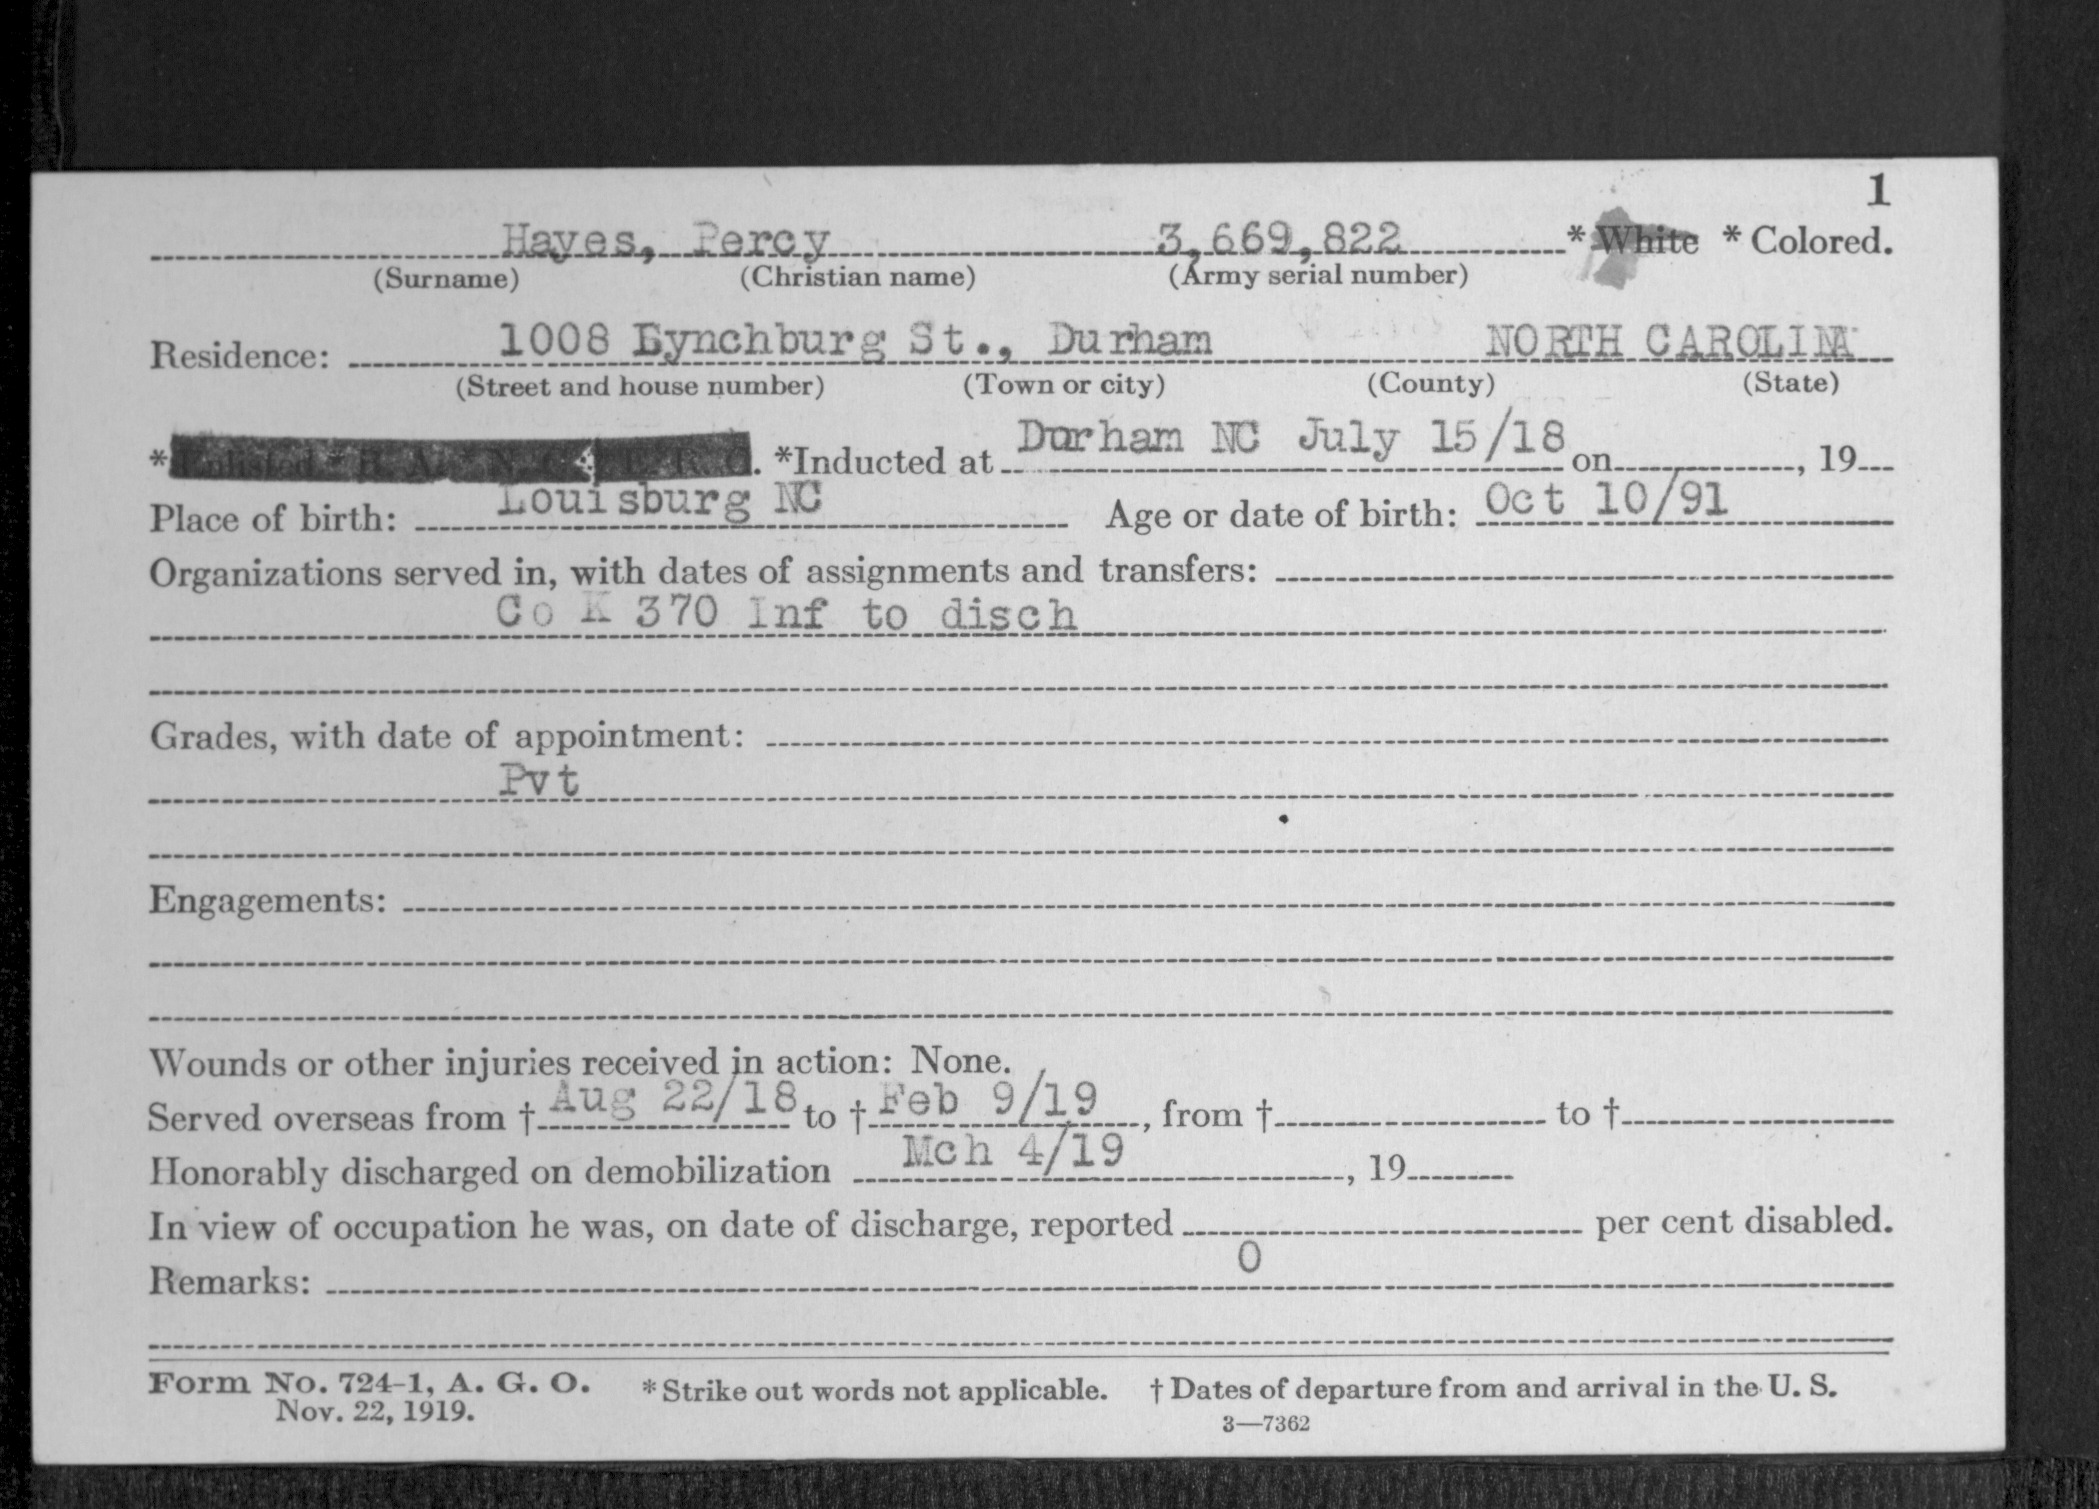 1
Hayes, Percy 3,669,822 * White * Colored.
(Surname) (Christian name) (Army serial number)
Residence: 1008 Lynchburg St., Durham NORTH CAROLINA
(Street and house number) (Town or city) (County) (State)
* Enlisted * R. A. * N. G. * E. R. C. *Inducted at Durham NC July 15/18 on , 19
Place of birth: Louisburg NC Age or date of birth: Oct 10/91
Organizations served in, with dates of assignments and transfers:
Co K 370 Inf to disch
Grades, with date of appointment:
Pvt
Engagements:
Wounds or other injuries received in action: None.
Served overseas from † Aug 22/18 to † Feb 9/19, from † to †
Honorably discharged on demobilization Mch 4/19 , 19
In view of occupation he was, on date of discharge, reported per cent disabled.
0
Remarks:
Form No. 724-1, A. G. O. * Strike out words not applicable. † Dates of departure from and arrival in the U. S.
Nov. 22, 1919.
3—7362